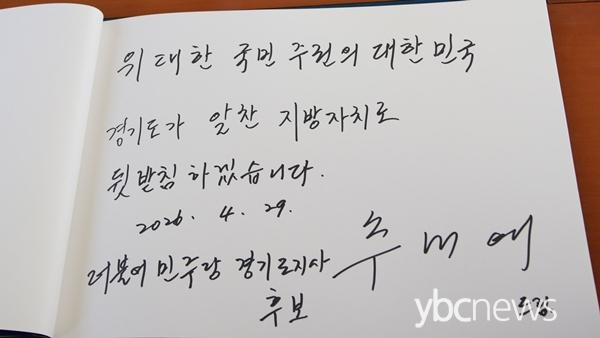 위대한 국민 주권의 대한민국
경기도가 알찬 지방자치로
뒷받침 하겠습니다.
2026. 4. 29.
더불어민주당 경기도지사
후보
추미애
드림
ybcnews